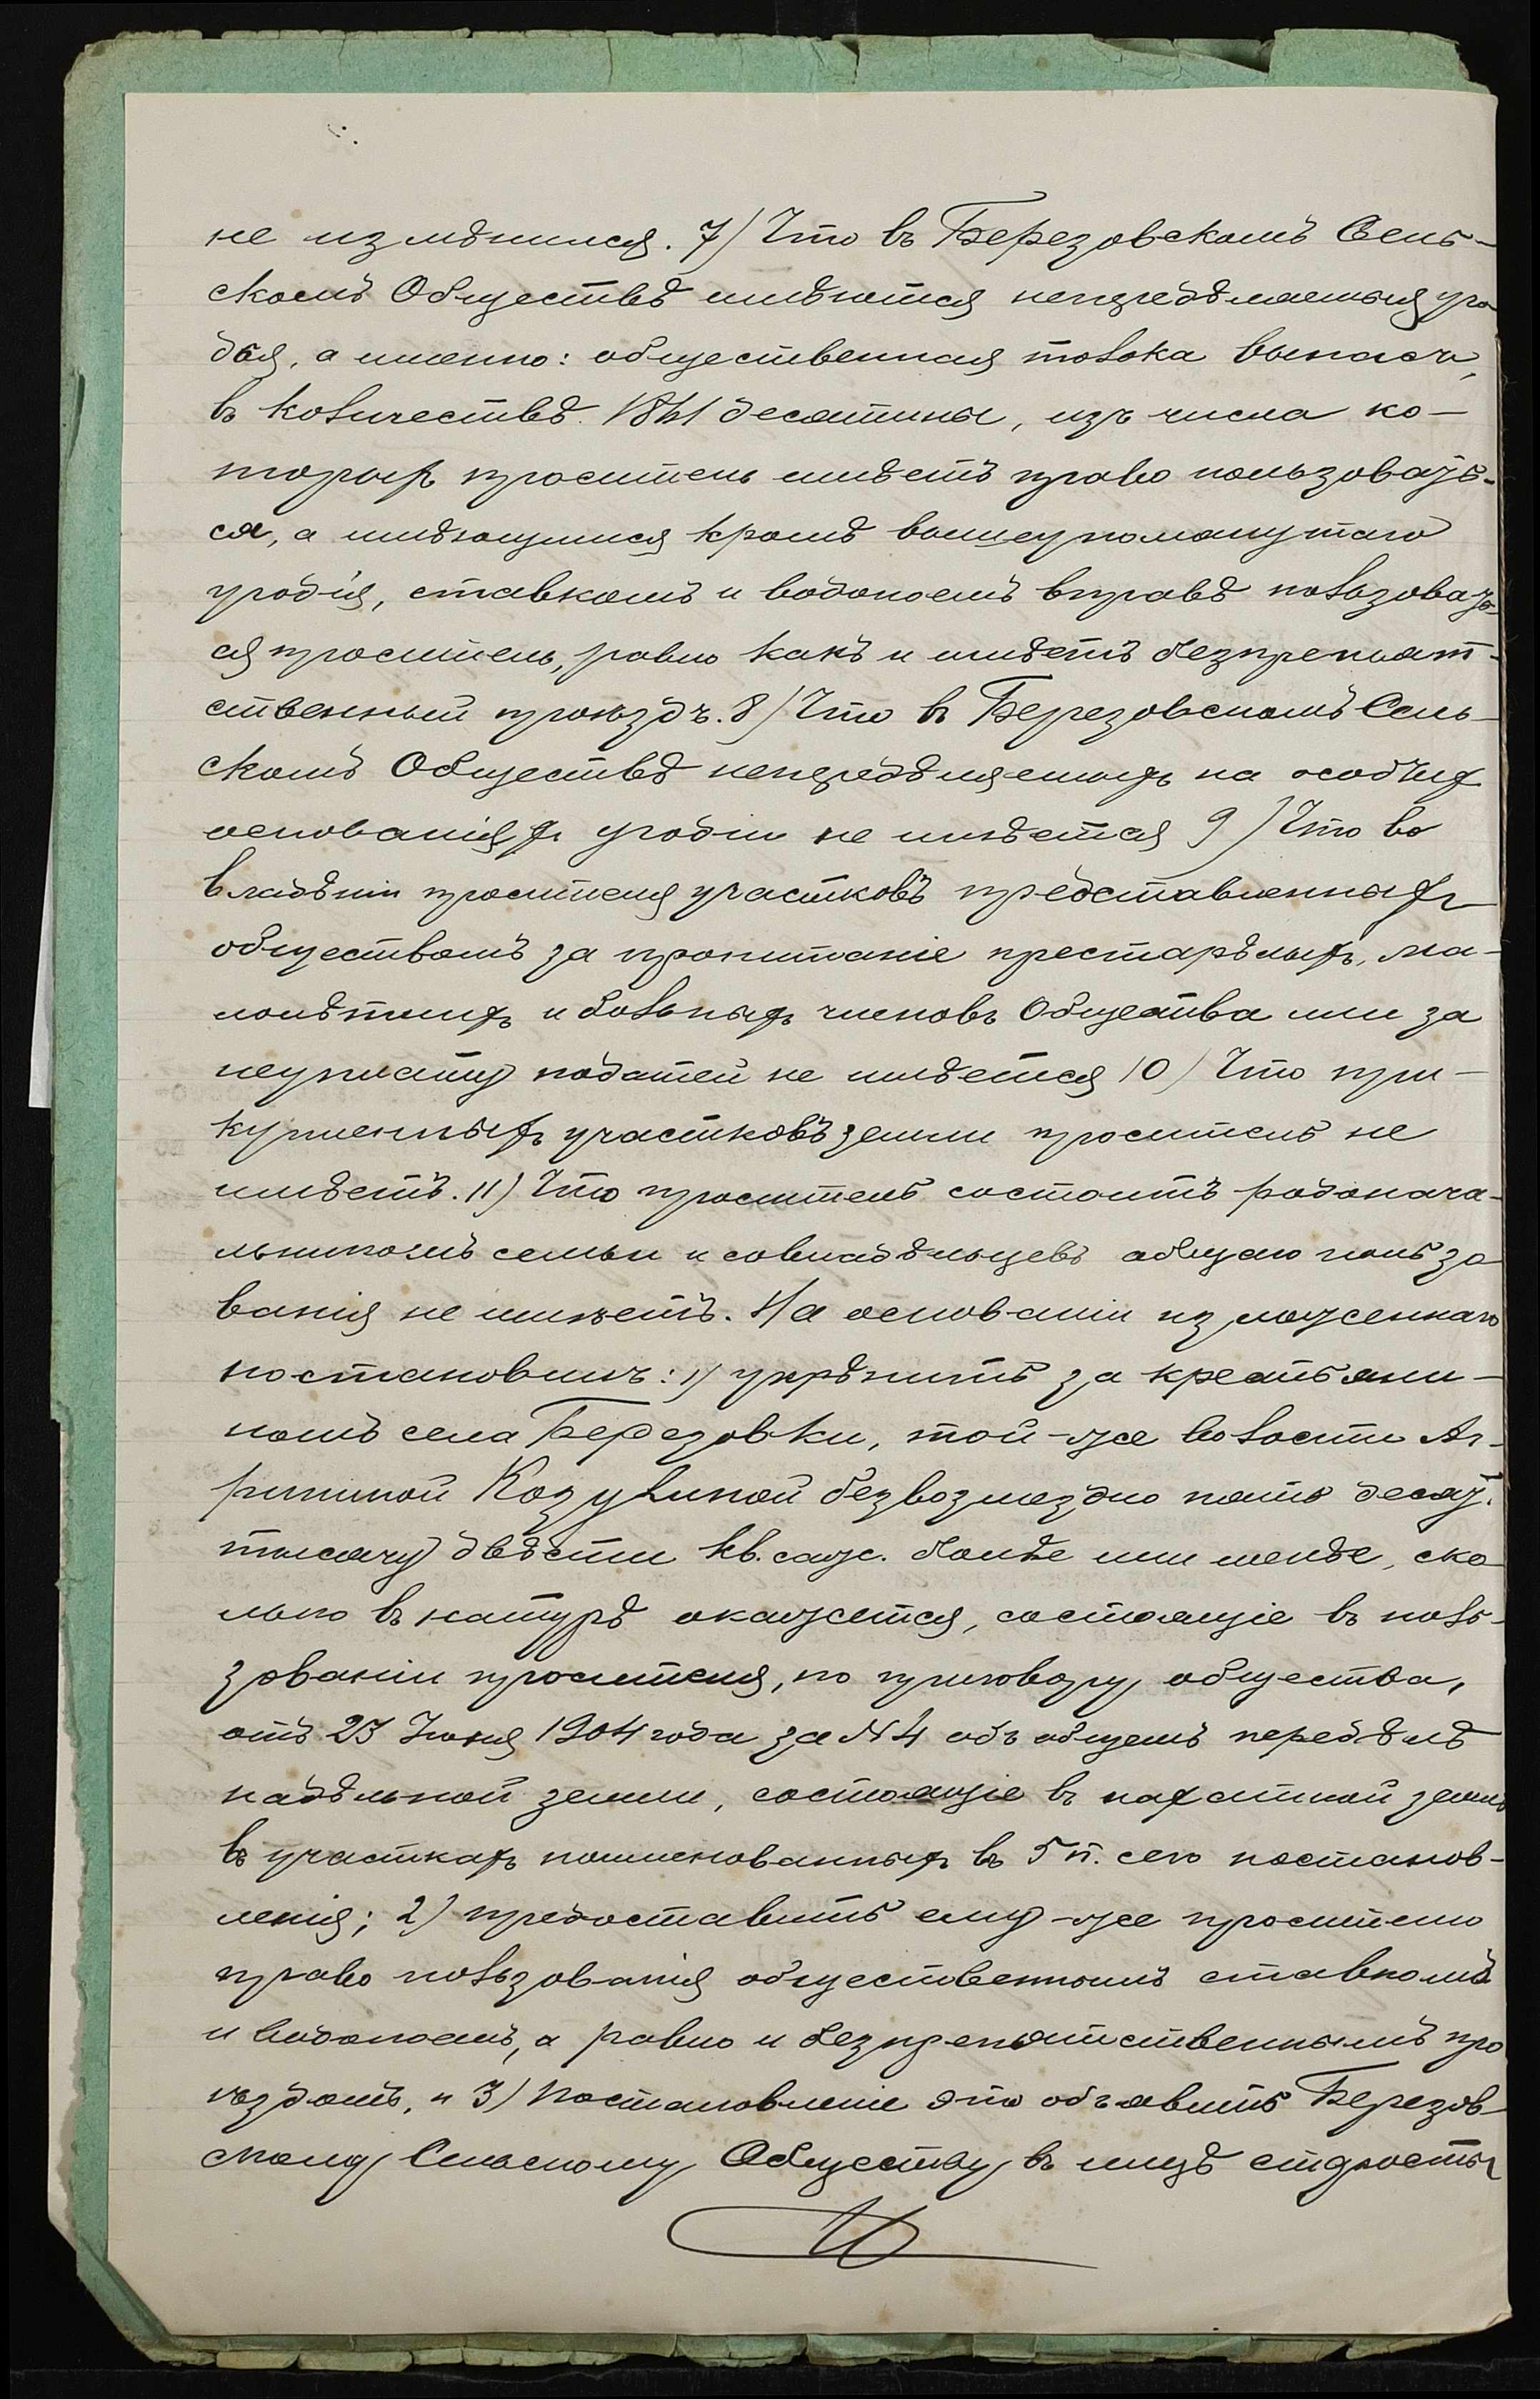 не измѣнился. 7) Что въ Березовскомъ Сель-
скомъ Обществѣ имѣются непредѣляемыя уго
дья, а именно: общественная толока выпасъ,
въ количествѣ десятины, изъ числа ко-
торыхъ проситель имѣетъ право пользовать-
ся, а имѣющимися кромѣ вышеупомянутаго
угодія, ставкомъ и водопоемъ вправѣ пользовать-
ся проситель, равно какъ и имѣетъ безпрепят-
ственный проѣздъ. 8) Что въ Березовскомъ Сель-
скомъ Обществѣ непредѣляемыхъ на особыхъ
основаніяхъ угодіи не имѣется 9) Что во
владѣніи просителя участковъ представленныхъ
обществомъ за пропитаніе престарѣлыхъ, ма-
лолѣтнихъ и больныхъ членовъ Общества или за
неуплату податей не имѣется 10) Что при-
купленныхъ участковъ земли проситель не
имѣетъ. 11) Что проситель состоитъ родонача-
льникомъ семьи и совладѣльцевъ общаго пользо
ванія не имѣетъ. На основаніи изложеннаго
постановилъ: 1) укрѣпить за крестьяни-
номъ села Березовки, той-же волости Аг-
рипиной безвозмездно пять десят.
тысячу двѣсти кв. саж. болѣе или менѣе, ско
лько въ натурѣ окажется, состоящіе въ поль-
зованіи просителя, по приговору общества,
отъ 23 Іюня 1904 года за № 4 объ общемъ передѣлѣ
надѣльной земли, состоящіе въ пахатной земли
въ участкахъ поименованныхъ въ 5 п. сего постанов-
ленія; 2) предоставить ему-же просителю
право пользованія общественнымъ ставкомъ
и водопоемъ, а равно и безпрепятственнымъ про
ѣздомъ, и 3) Постановленіе это объявить Березов-
скому Сельскому Обществу въ лицѣ старосты